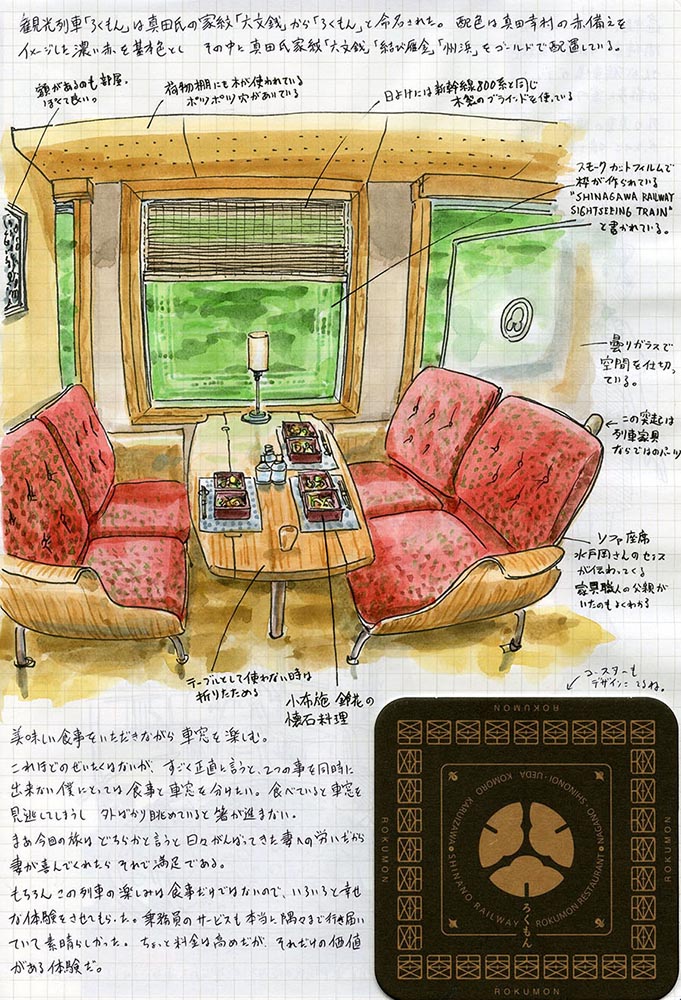 観光列車「ろくもん」は真田氏の家紋「六文銭」から「ろくもん」と命名された。配色は真田幸村の赤備えを
イメージした濃い赤を基本色とし その中に真田氏家紋「六文銭」「結び雁金」「州浜」をゴールドで配置している。
額があるのも部屋
ぽくて良いっ
荷物棚にも木が使われている
ポツポツ穴があいている
日よけには新幹線800系と同じ
木製のブラインドを使っている
スモークカットフィルムで
枠が作られている
"SHINAGAWA RAILWAY
SIGHTSEEING TRAIN"
と書かれている。
曇りガラスで
空間を仕切っ
ている。
この突起は
列車家具
ならではのパーツ
ソファ座席
水戸岡さんのセンス
が伝わってくる
家具職人の父親が
いたのもよくわかる
テーブルとして使わない時は
折りたためる
小布施 鈴花の
懐石料理
コースターも
デザインこってるね。
美味しい食事をいただきながら車窓を楽しむ。
これほどのぜいたくはないが、すごく正直に言うと、2つの事を同時に
出来ない僕にとっては食事と車窓を分けたい。食べていると車窓を
見逃してしまうし 外ばかり眺めていると箸が進まない。
まあ今回の旅は どちらかと言うと日々がんばってきた妻への労いだから
妻が喜んでくれたら それで満足である。
もちろんこの列車の楽しみは食事だけではないので、いろいろと幸せ
な体験をさせてもらった。乗務員のサービスも本当に隅々まで行き届い
ていて素晴らしかった。ちょっと料金は高めだが、それだけの価値
がある体験だ。
ROKUMON
ROKUMON
ROKUMON
ROKUMON
NAGANO SHINONOI・UEDA KOMORO KARUIZAWA
SHINANO RAILWAY
ROKUMON RESTAURANT
ろくもん